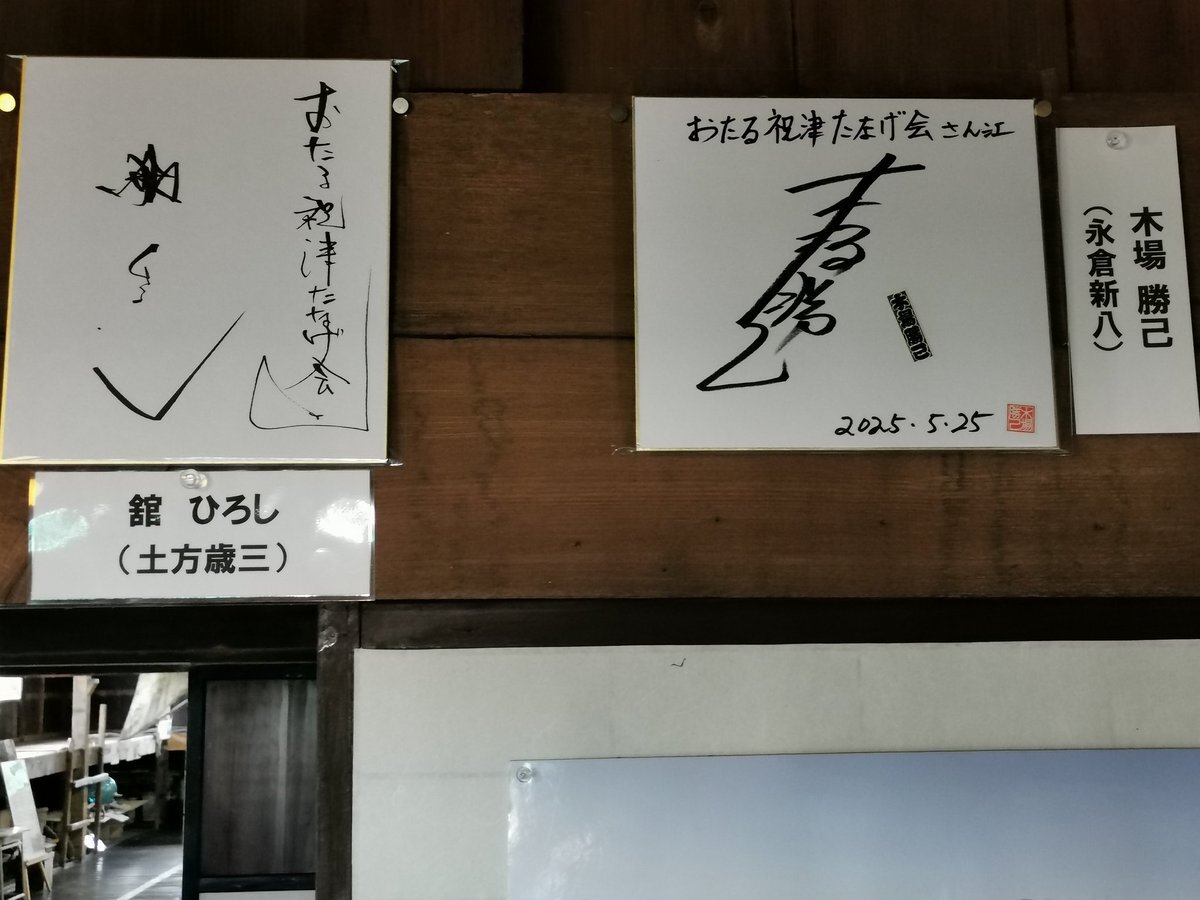 おたる祝津たなげ会
舘 ひろし
（土方歳三）
おたる祝津たなげ会さん江
木場勝己
2025.5.25
木場 勝己
（永倉新八）